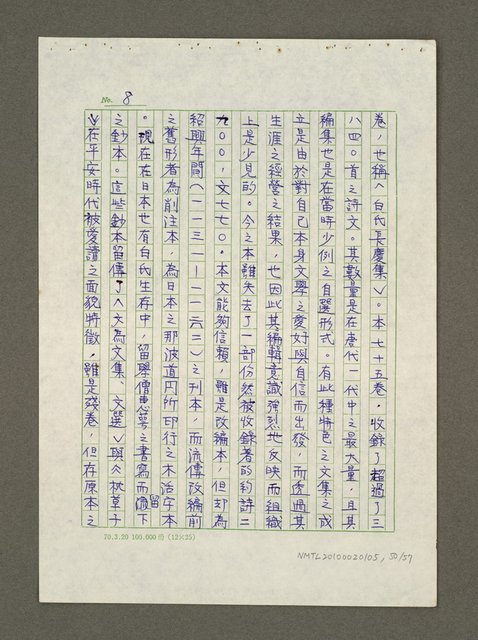 No. 8
卷，也稱〈白氏長慶集〉。本七十五卷，收錄了超過了三
八四〇首之詩文。其數量是在唐代一代中之最大量，且其
編集也是在當時少例之自選形式。有此種特色之文集之成
立是由於對自己本身文學之愛好與自信而出發，而透過其
生涯之經營之結果，也因此其編輯意識強烈地反映而組織
上是少見的。今之本雖失去了一部份然被收錄著的約詩二
九〇〇，文七七〇。本文能夠信賴，雖是改編本，但却為
紹興年間（一一三一－一一六二）之刊本，而流傳改編前
之舊形者為削注本，為日本之那波道円所印行之木活字本
。現在在日本也有白氏生存中，留學僧惠萼之書寫而留下
之鈔本。這些鈔本留傳了〈文為文集、文選〉與〈枕草子
〉在平安時代被愛讀之面貌特徵，雖是殘卷，但存原本之
70.3.20 100.000冊 (12×25)
NMTL20100020105, 50/57